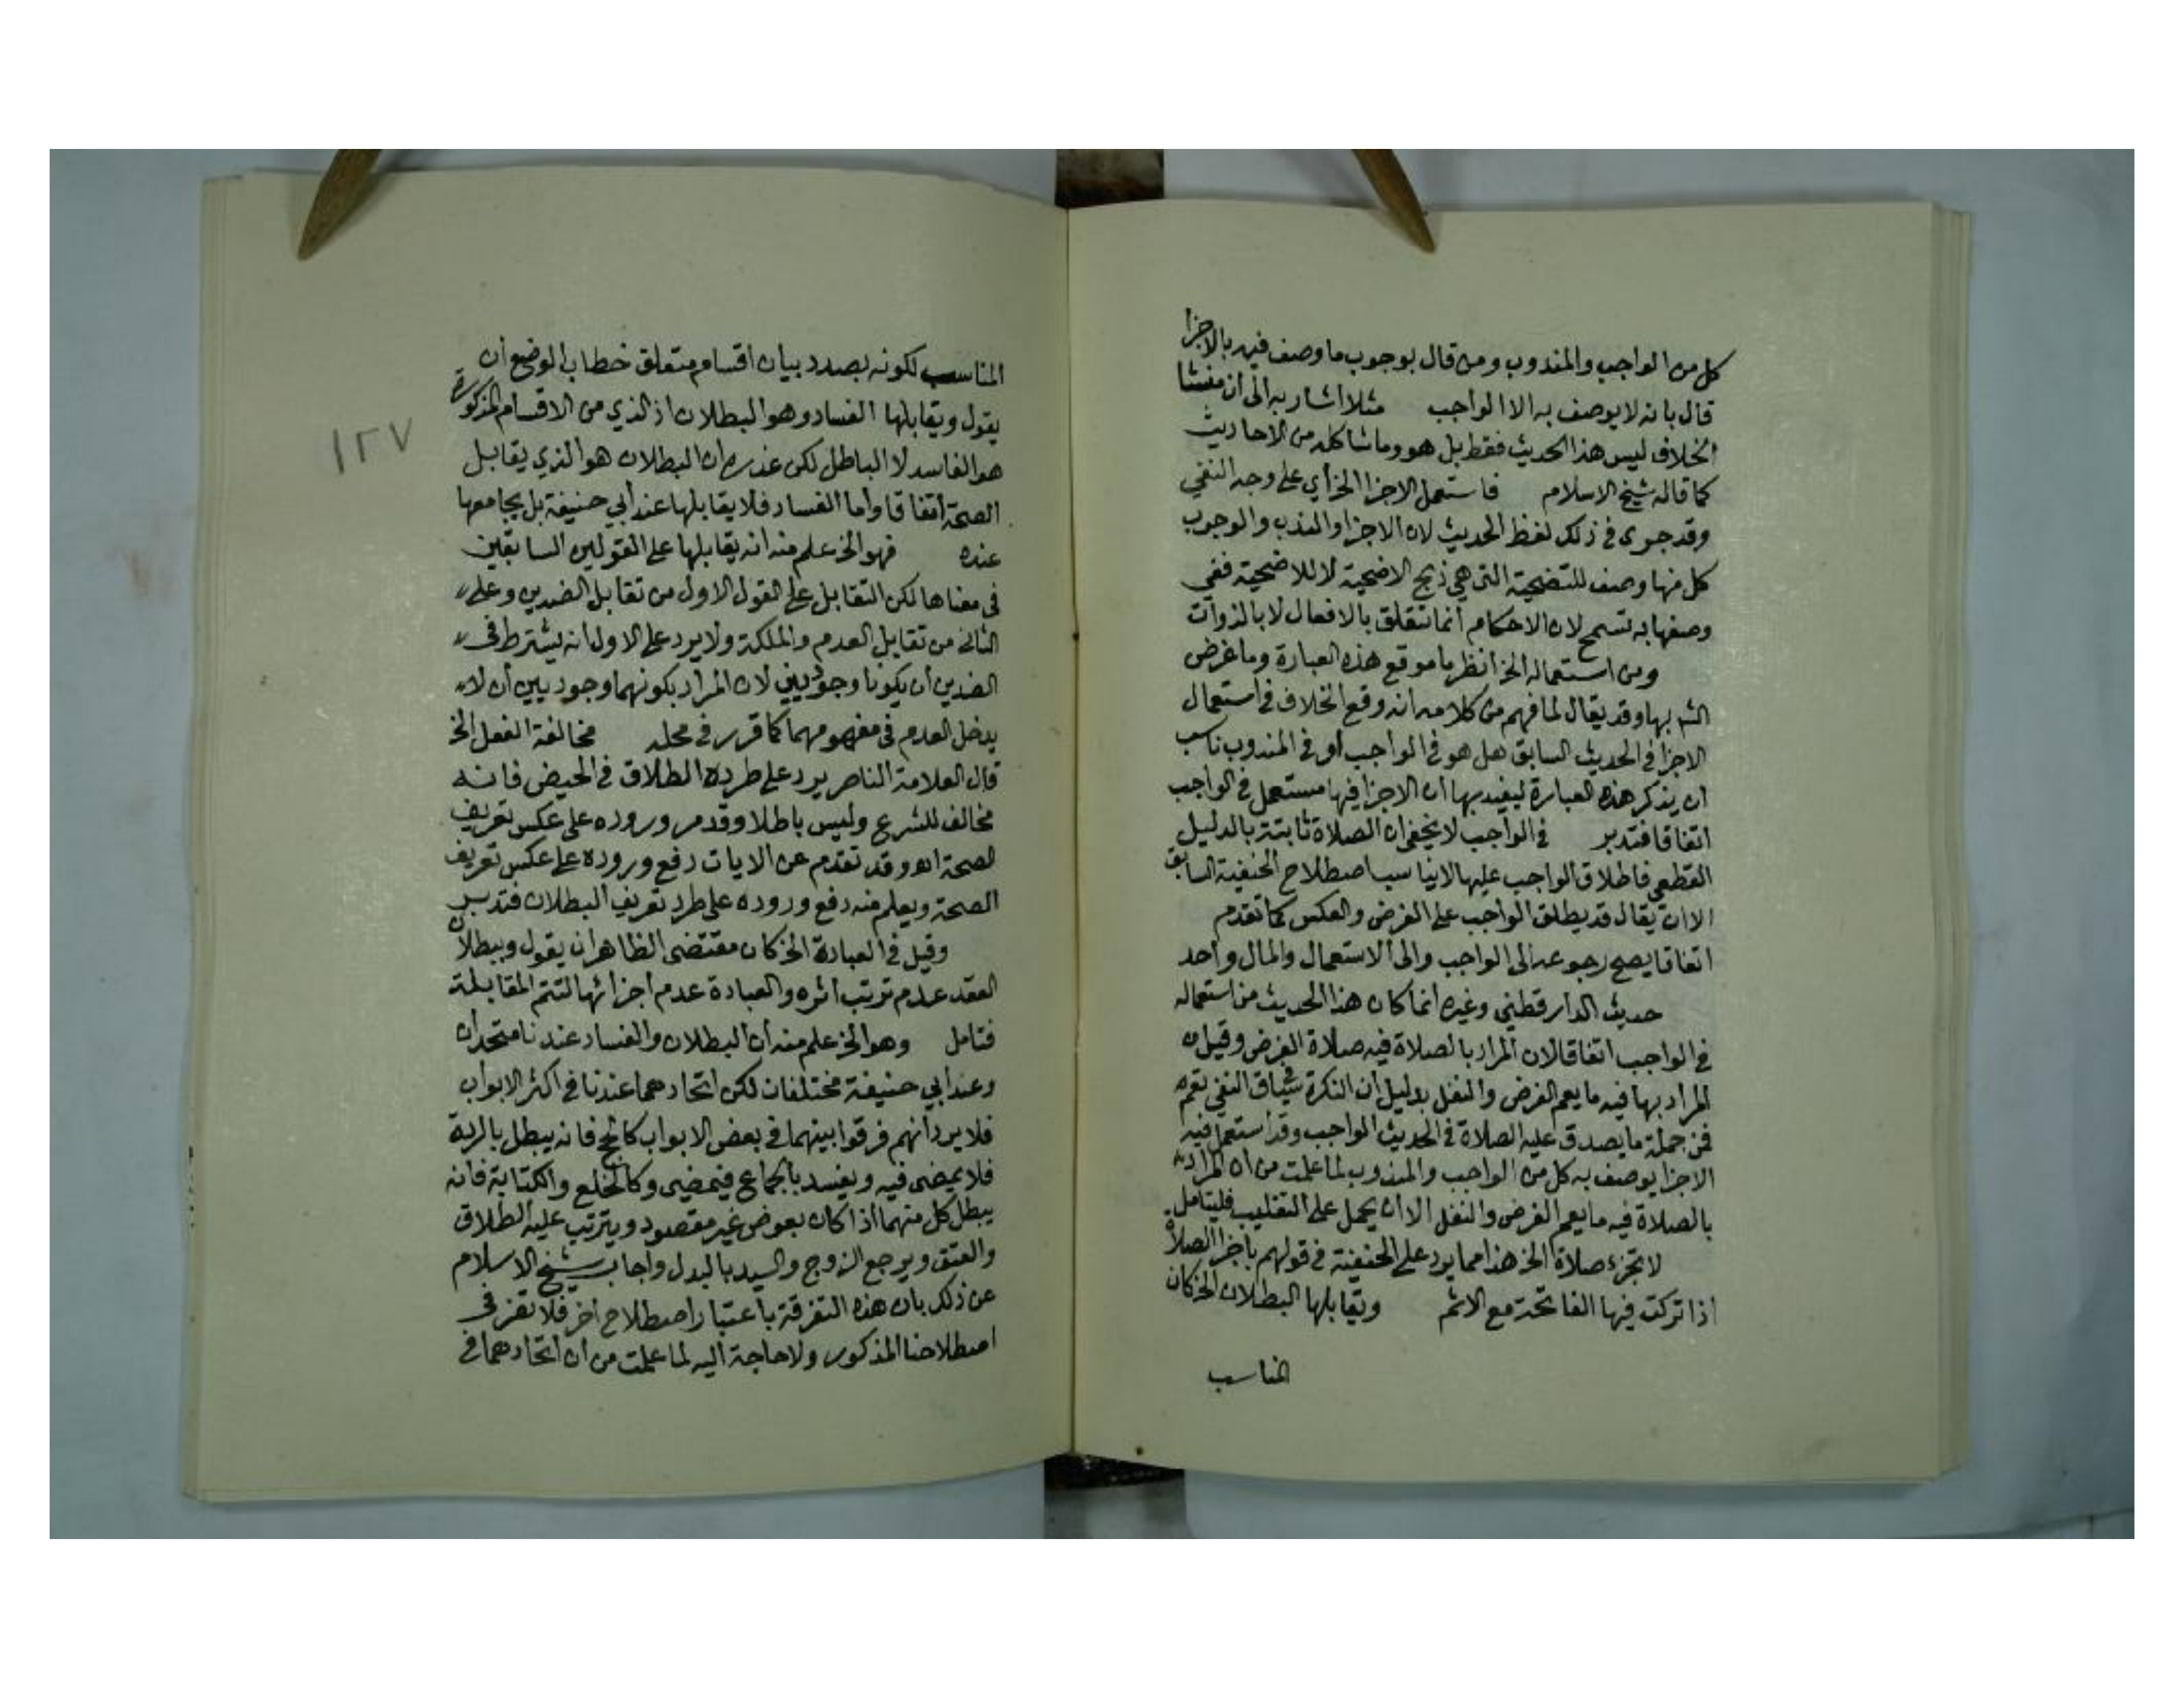 كل من الواجب والمندوب ومن قال بوجوب ما وصف فيه بالاجزا
قال بانه لا يوصف به الا الواجب مثلا اشار به الى ان منشا
الخلاف ليس هذا الحديث فقط بل هو وما شاكله من الاحاديث
كما قاله شيخ الاسلام فاستعمل الاجزا الخ أي على وجه النفي
وقد جرى في ذلك لفظ الحديث لان الاجزا والندب والوجوب
كل منها وصف للتضحية التي هي ذبح الاضحية لا للاضحية ففي
وصفها به تسمح لان الاحكام انما تتعلق بالافعال لا بالذوات
ومن استعماله الخ انظر ما موقع هذه العبارة وما غرض
الش بها وقد يقال لما فهم من كلامه انه وقع الخلاف في استعمال
الاجزا في الحديث السابق هل هو في الواجب أو في المندوب ناسب
ان يذكر هذه العبارة ليفيد بها ان الاجزا فيها مستعمل في الواجب
اتفاقا فتدبر في الواجب لا يخفى ان الصلاة ثابتة بالدليل
القطعي فاطلاق الواجب عليها لا يناسب اصطلاح الحنفية السابق
الا ان يقال قد يطلق الواجب على الفرض والعكس كما تقدم
اتفاقا يصح رجوعه الى الواجب والى الاستعمال والمال واحد
حديث الدارقطني وغيره انما كان هذا الحديث من استعماله
في الواجب اتفاقا لان المراد بالصلاة فيه صلاة الفرض وقيل ان
المراد بها فيه ما يعم الفرض والنفل بدليل ان النكرة في سياق النفي تعم
فمن جملة ما يصدق عليه الصلاة في الحديث الواجب وقد استعمل فيه
الاجزا يوصف به كل من الواجب والمندوب لما علمت من ان المراد
بالصلاة فيه ما يعم الفرض والنفل الا ان يحمل على التغليب فليتامل
لا تجزء صلاة الخ هذا مما يرد على الحنفية في قولهم باجزا الصلاة
اذا تركت فيها الفاتحة مع الاثم ويقابلها البطلان الخ كان
المناسب
المناسب لكونه بصدد بيان اقسام متعلق خطاب الوضع أن
يقول ويقابلها الفساد وهو البطلان اذ الذي من الاقسام المذكورة
هو الفاسد لا الباطل لكن عذره ان البطلان هو الذي يقابل
الصحة اتفاقا وأما الفساد فلا يقابلها عند أبي حنيفة بل يجامعها
عنده فهو الخ علم منه انه يقابلها على القولين السابقين
في معناها لكن التقابل على القول الاول من تقابل الضدين وعلى
الثاني من تقابل العدم والملكة ولا يرد على الاول انه يشترط في
الضدين أن يكونا وجوديين لان المراد بكونهما وجوديين أن لا
يدخل العدم في مفهومهما كما قرر في محله مخالفة الفعل الخ
قال العلامة الناصر يرد على طرده الطلاق في الحيض فانه
مخالف للشرع وليس باطلا وقد مر وروده على عكس تعريف
الصحة اهـ وقد تقدم عن الايات دفع وروده على عكس تعريف
الصحة ويعلم منه دفع وروده على طرد تعريف البطلان فتدبر
وقيل في العبادة الخ كان مقتضى الظاهر ان يقول وببطلان
العقد عدم ترتب اثره والعبادة عدم اجزائها لتتم المقابلة
فتامل وهو الخ علم منه أن البطلان والفساد عندنا متحدان
وعند أبي حنيفة مختلفان لكن اتحادهما عندنا في اكثر الابواب
فلا يرد انهم فرقوا بينهما في بعض الابواب كالحج فانه يبطل بالردة
فلا يمضى فيه ويفسد بالجماع فيمضى وكالخلع والكتابة فانه
يبطل كل منهما اذا كان بعوض غير مقصود ويترتب عليه الطلاق
والعتق ويرجع الزوج والسيد بالبدل واجاب شيخ الاسلام
عن ذلك بان هذه التفرقة باعتبار اصطلاح آخر فلا تضر في
اصطلاحنا المذكور ولا حاجة اليه لما علمت من ان اتحادهما في
١٢٧